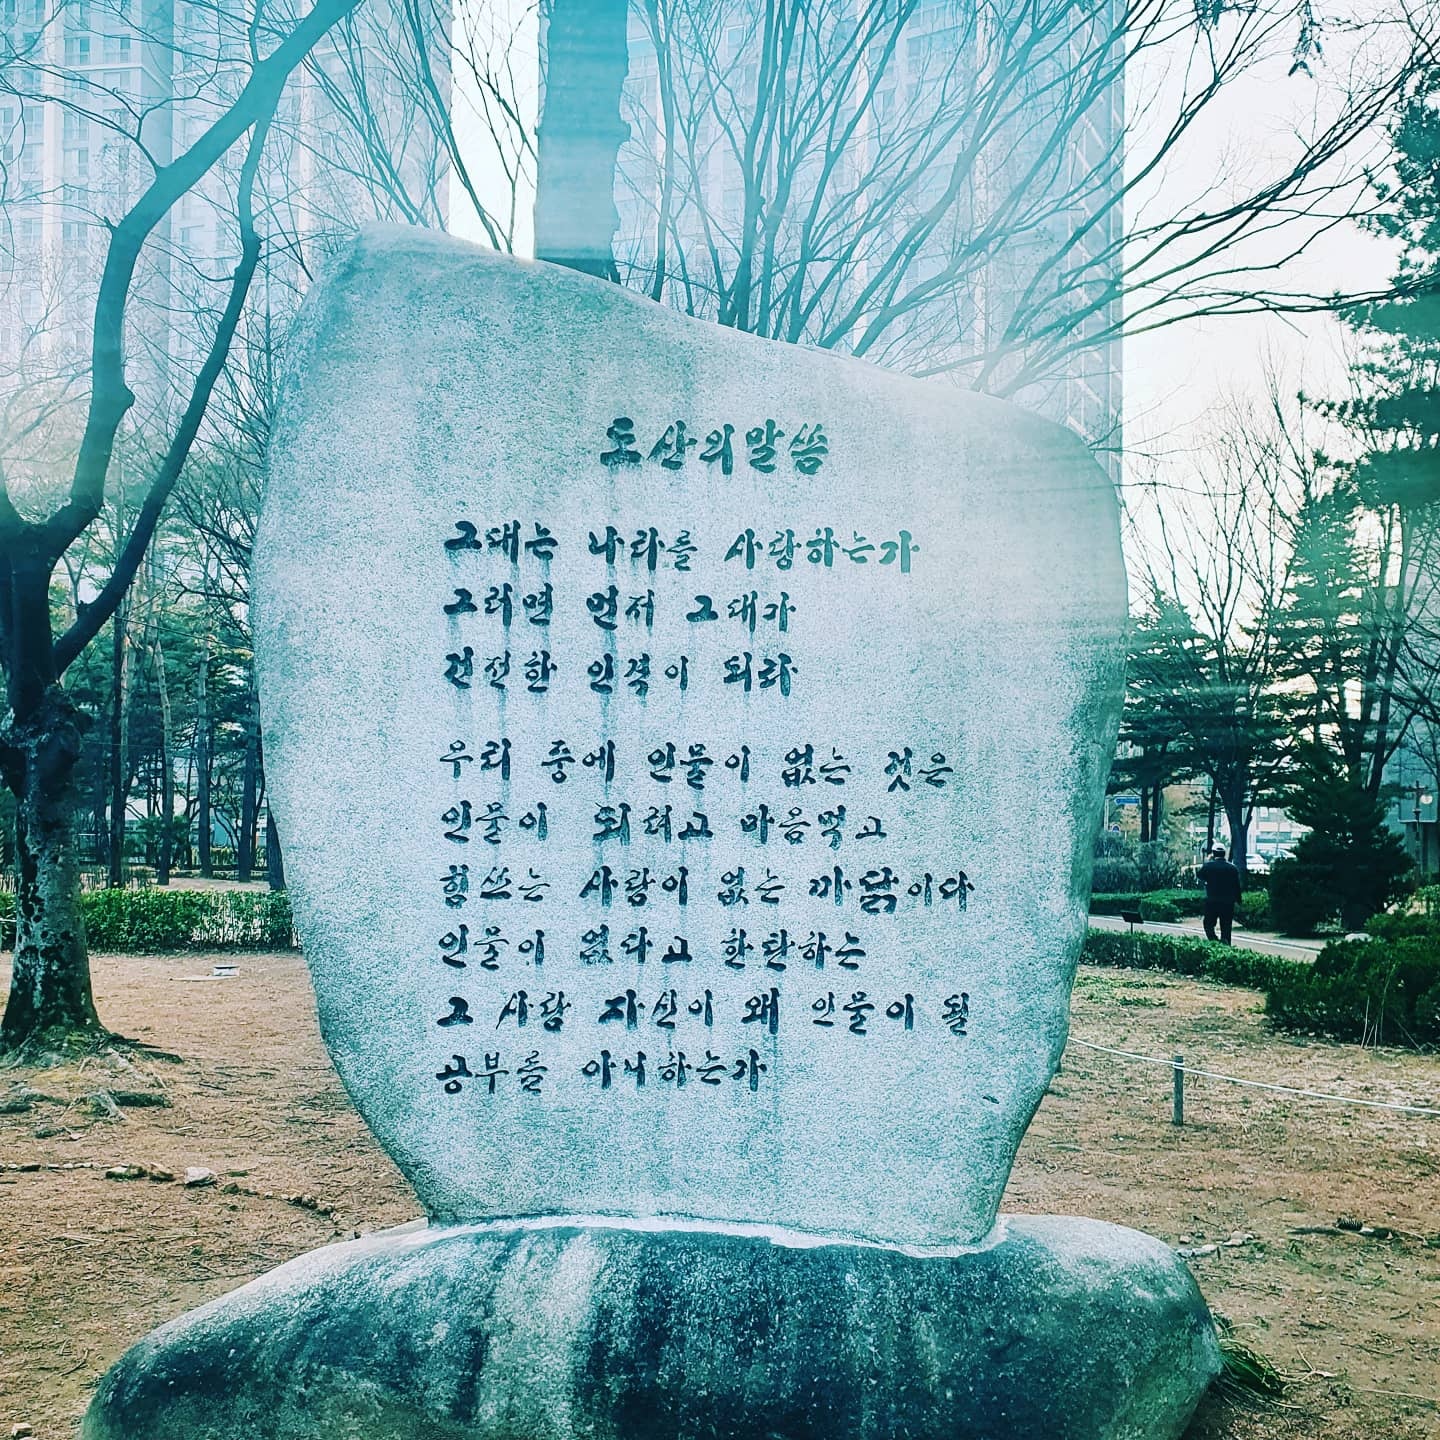 도산의 말씀
그대는 나라를 사랑하는가
그러면 먼저 그대가
건전한 인격이 되라
우리 중에 인물이 없는 것은
인물이 되려고 마음먹고
힘쓰는 사람이 없는 까닭이다
인물이 없다고 한탄하는
그 사람 자신이 왜 인물이 될
공부를 아니하는가